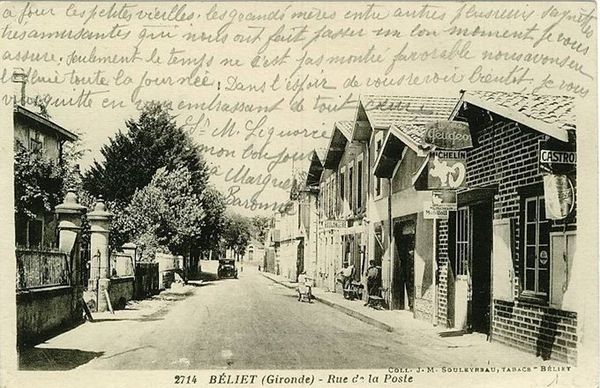 à four les petites vieilles, les grands mères entre autres plusieurs saynètes
très amusantes qui nous ont fait passer un bon moment je vous
assure, seulement le temps ne s'est pas montré favorable nous avons eu
la pluie toute la journée. Dans l'espoir de vous revoir bientôt je vous
quitte en vous embrassant de tout cœur
mon bonjour
à Marguerite
Baronne
MICHELIN
CASTROL
Mobiloil
COLL. J. M. SOULEYREAU, TABACS - BÉLIET
2714 BÉLIET (Gironde) - Rue de la Poste